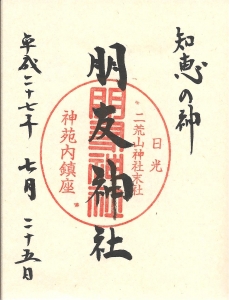 知恵の神
日光
二荒山神社末社
朋友神社
神苑内鎮座
平成二十七年 七月 二十五日